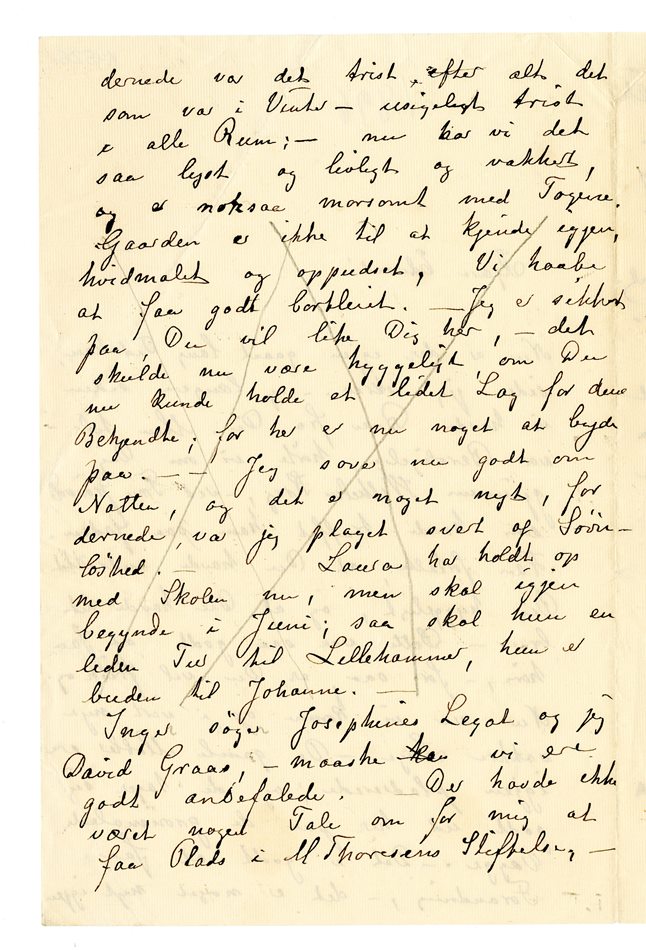 dernede var det trist, efter alt det
som var i Vinter – usigeligt trist
i alle Rum; – nu har vi det
saa lyst og livligt og vakkert,
og er noksaa morsomt med Togene.
Gaarden er ikke til at kjende igjen,
hvidmalet og oppudset, Vi haabe
at faa godt bortleiet. – Jeg er sikker
paa, Du vil like Dig her, – det
skulde nu være hyggeligt, om Du
nu kunde holde et lidet Lag for dine
Bekjendte; for her er nu noget at byde
paa. – – Jeg sover nu godt om
Natten, og det er noget nyt, for
dernede var jeg plaget svert af Søvn-
løshed. – Laura har holdt op
med Skolen nu, men skal igjen
begynde i Juni; saa skal hun en
liden Tur til Lillehammer, hun er
buden til Johanne. –
Inger søger Josephines Legat og jeg
David Graas, – maaske vi ere
godt anbefalede. – Der havde ikke
været nogen Tale om for mig at
faa Plads i M Thoresens Stiftelse, –